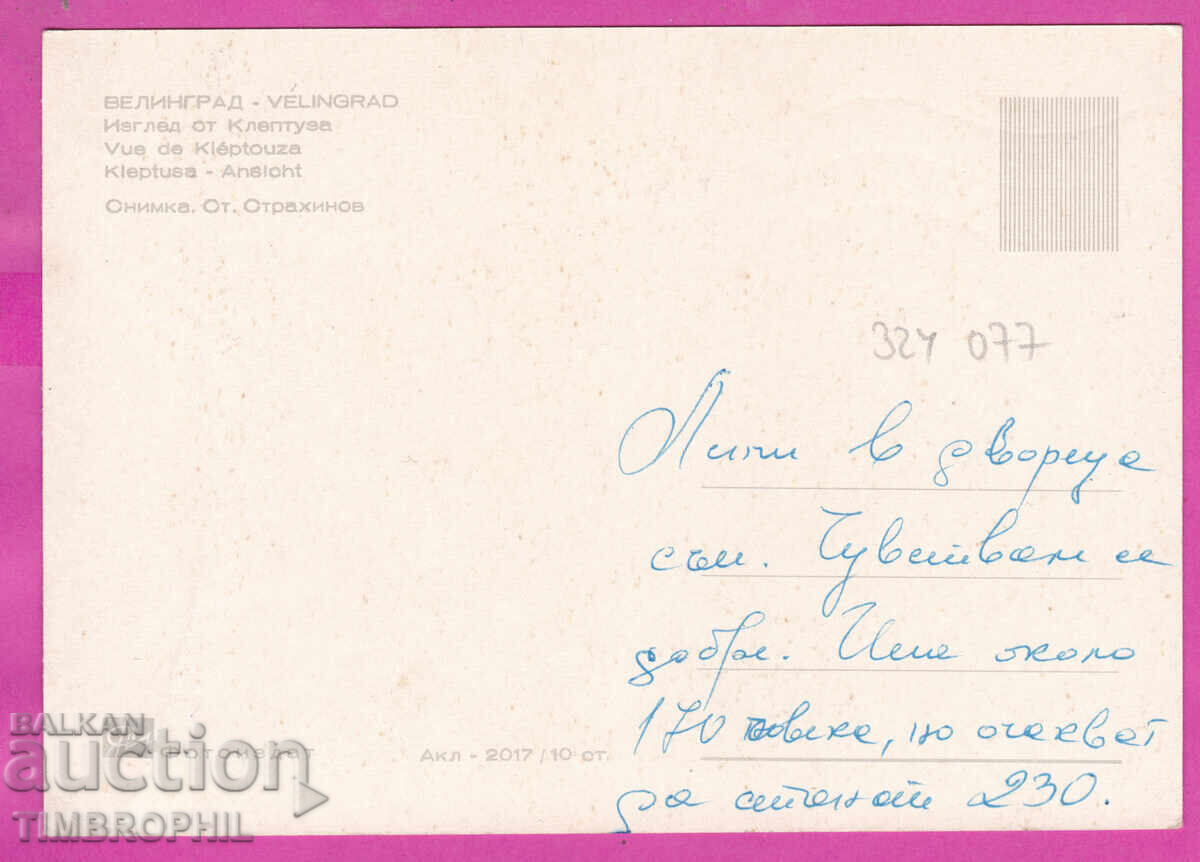 ВЕЛИНГРАД - VÉLINGRAD
Изглед от Клептуза
Vue de Kléptouza
Kleptusa - Ansicht
Снимка. Ст. Страхинов
324 077
в двореца
съм. Чувствам се
добре. Има около
170 човека, но очакват
да станат 230.
Фотоиздат
Акл - 2017/10 ст.
BALKAN
auction
TIMBROPHIL